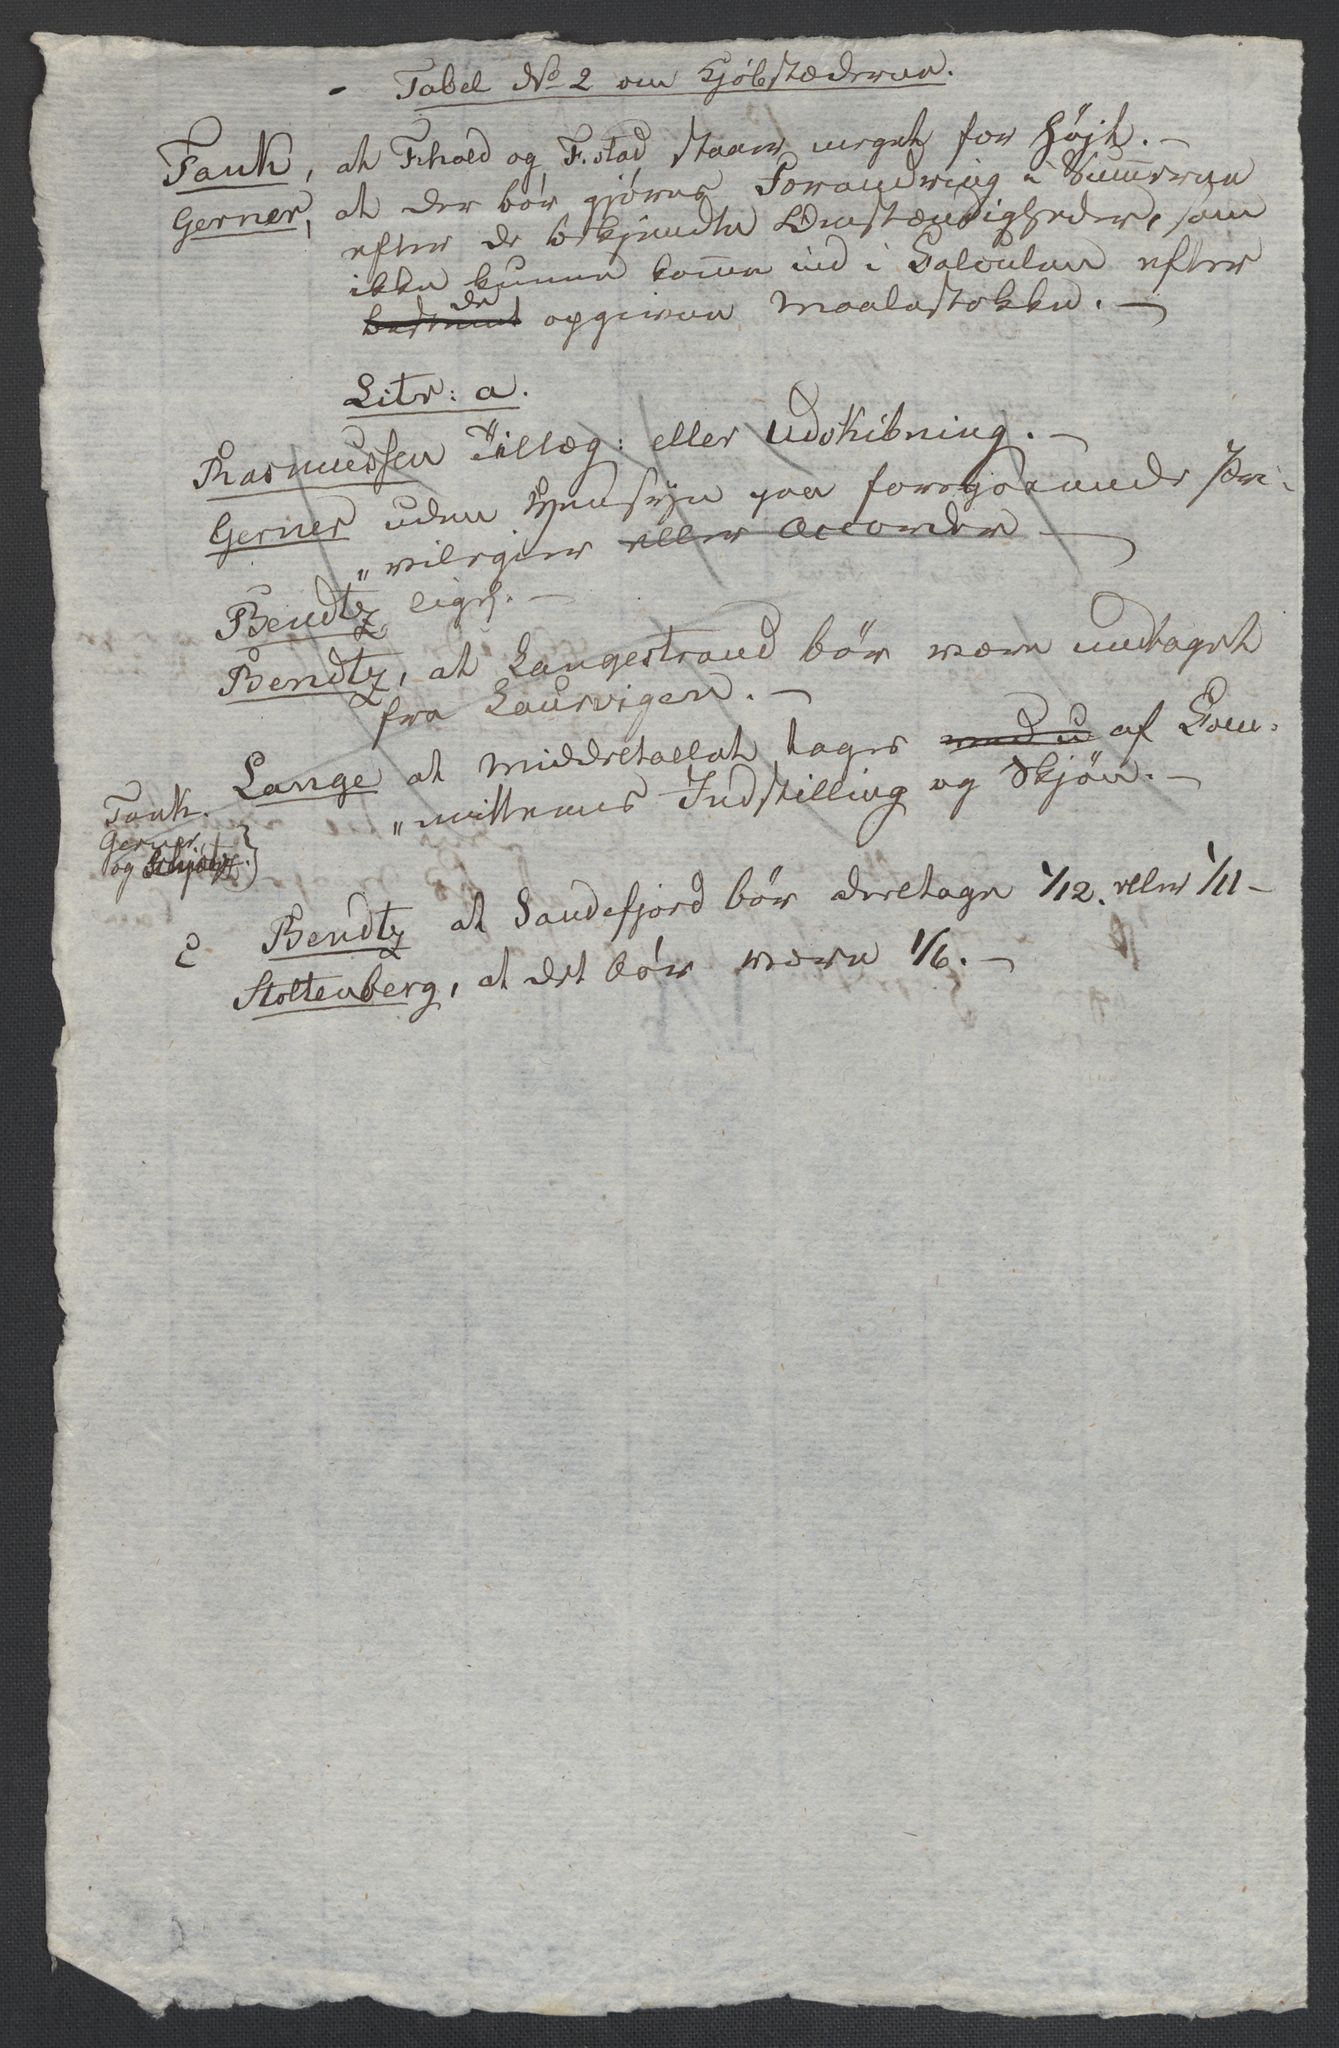 - Tabel No 2 om Kjöbstæderne.
Fank, at Frhald og F.stad staaer meget for højt. -
Gerner, at der bör gjöres Forandring i Summerne
efter de bekjendte Omstændigheder, som
ikke kunne komme ind i Calculen efter
de
opgivne Maalestokke. -
Litr: a.
Rasmussen Tillæg: eller Udskibning. -
Gerner uden Hensyn paa foregivende Pri-
„vilegier eller Accorder -
Bendtz ligs. -
Bendtz, at Langestrand bör være undtaget
fra Laurvigen. -
Lange at Middeltallet tages med u af Com-
„mitteens Indstilling og Skjön. -
Fank.
Gerner
og Schjötz.}
c Bendtz at Sandefjord bör deeltage 1/12. eller 1/11 -
Stoltenberg, at det bör være 1/6. -